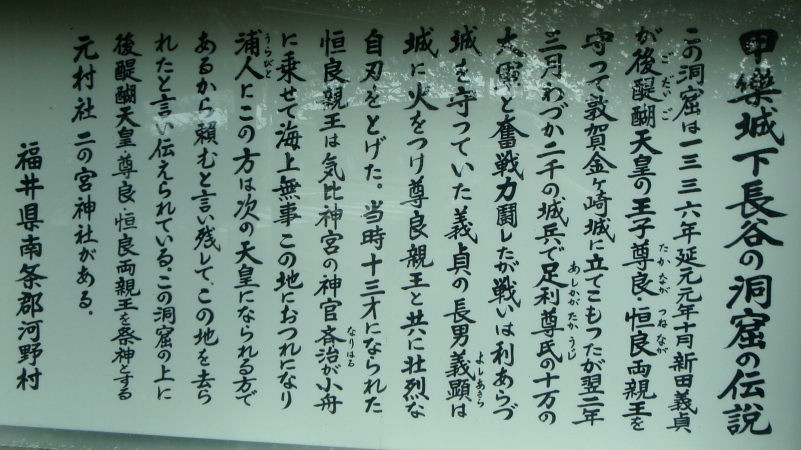 甲楽城下長谷の洞窟の伝説
この洞窟は一三三六年延元元年十月新田義貞
が後醍醐天皇の王子尊良・恒良両親王を
守って敦賀金ヶ崎城に立てこもったが翌二年
三月わづか二千の城兵で足利尊氏の十万の
大軍と奮戦力闘したが戦いは利あらづ
城を守っていた義貞の長男義顕は
城に火をつけ尊良親王と共に壮烈な
自刃をとげた。当時十三才になられた
恒良親王は気比神宮の神官斉治が小舟
に乗せて海上無事この地におつれになり
浦人にこの方は次の天皇になられる方で
あるから頼むと言い残して、この地を去ら
れたと言い伝えられている。この洞窟の上に
後醍醐天皇尊良・恒良両親王を祭神とする
元村社 二の宮神社がある.
福井県南条郡河野村